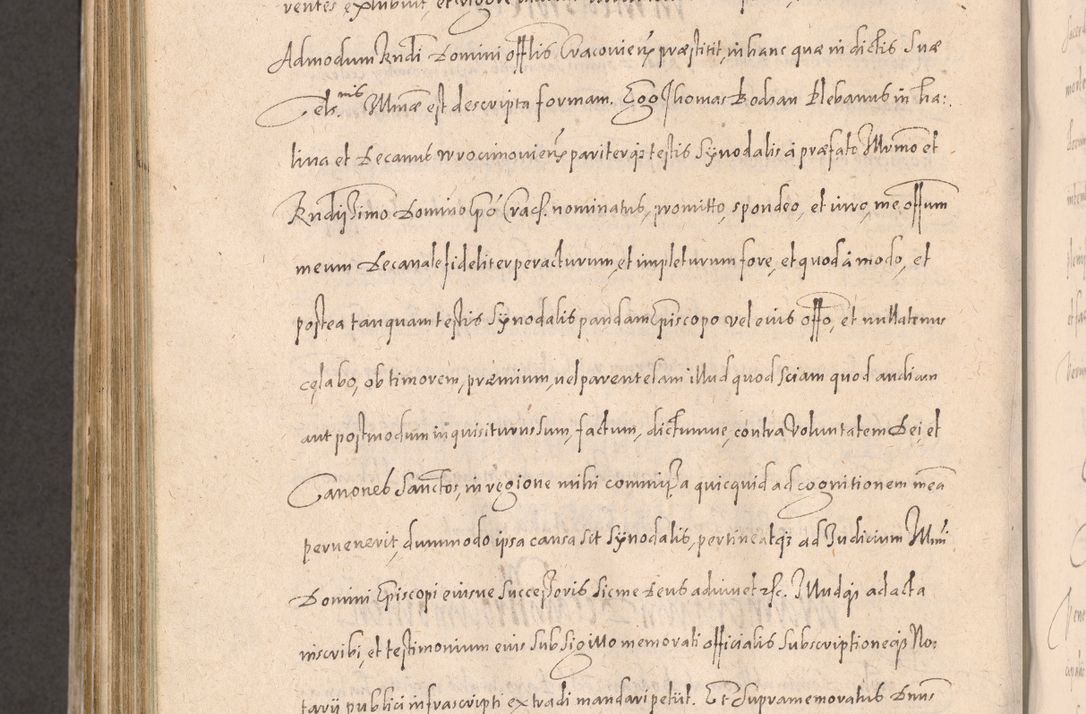 Admodum Rndi Domini offlis Cracovien præstitit, in hanc quæ in dictis Suæ
Cels.nis Illmæ est descripta formam. Ego Thomas Bodzan Plebanus in ha:
lina et Decanus wrocimovien pariterq3 testis Synodalis à præfato Illmo et
Rndissimo Domino Epo Cracf. nominatus, promitto, spondeo, et iuro, me offum
meum Decanale fideliter peracturum, et impleturum fore, et quod à modo, et
postea tanquam testis Synodalis pandam Episcopo vel eius offo, et nullatenus
cęlabo, ob timorem, præmium, vel parentelam illud quod sciam quod audiam
aut postmodum inquisiturus sum, factum, dictumve, contra Voluntatem Dei, et
Canones Sanctos, in regione mihi commissa quicquid ad cognitionem meã
pervenerit, dummodo ipsa causa sit Synodalis, pertineatq3 ad Iudicium Illmi
Domini Episcopi eiusve Successoris sic me Deus adiuvet etc. Illudq3 ad acta
inscribi, et testimonium eius sub sigillo memorati officialis subscriptioneq3 No:
tarij publici infrascripti extradi mandari petijt. Et Supramemoratus Dnus